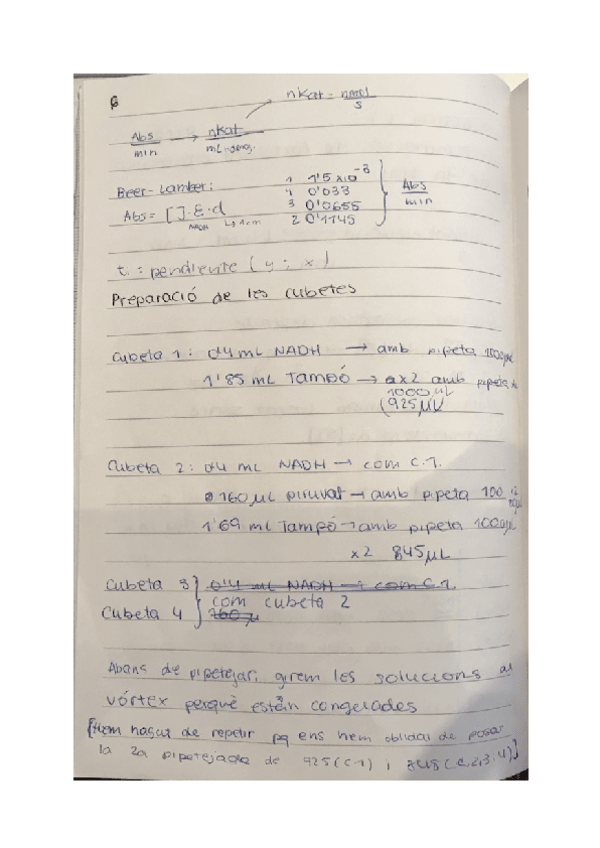 6
nkat = nmol/s
Abs/min → nkat/mL
Beer-Lamber:
Abs = [ ]·ε·d
NADH ↳ 1cm
1 1'5 x10⁻³
1 0'033
3 0'0655
2 0'1145
Abs/min
t. : pendiente (y ; x)
Preparació de les cubetes
Cubeta 1: 0'4 mL NADH → amb pipeta 1000µL
1'85 mL Tampó → x2 amb pipeta de
1000µL
(925µL
Cubeta 2: 0'4 mL NADH → com C.1.
160µL piruvat → amb pipeta 100
1'69 mL Tampó → amb pipeta 1000µL
x2 845µL
Cubeta 3 } 0'4 mL NADH → com C.1.
com cubeta 2
Cubeta 4 } 160µ
Abans de pipetejar, girem les solucions al
vórtex perquè estàn congelades
[Hem hagut de repetir pq ens hem oblidat de posar
la 2a pipetejada de 925 (C.1) i 845 (C.2,3,4)]